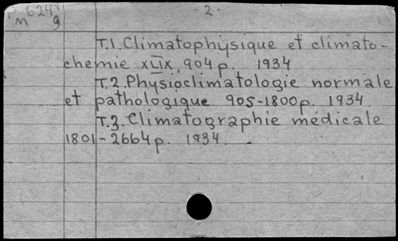 - 2 -
M 9
T.1. Climatophysique et climato-
chemie XLIX, 904 p. 1934
T.2. Physioclimatologie normale
et pathologique 905-1800 p. 1934
T.3. Climatographie médicale
1801-2664 p. 1934.